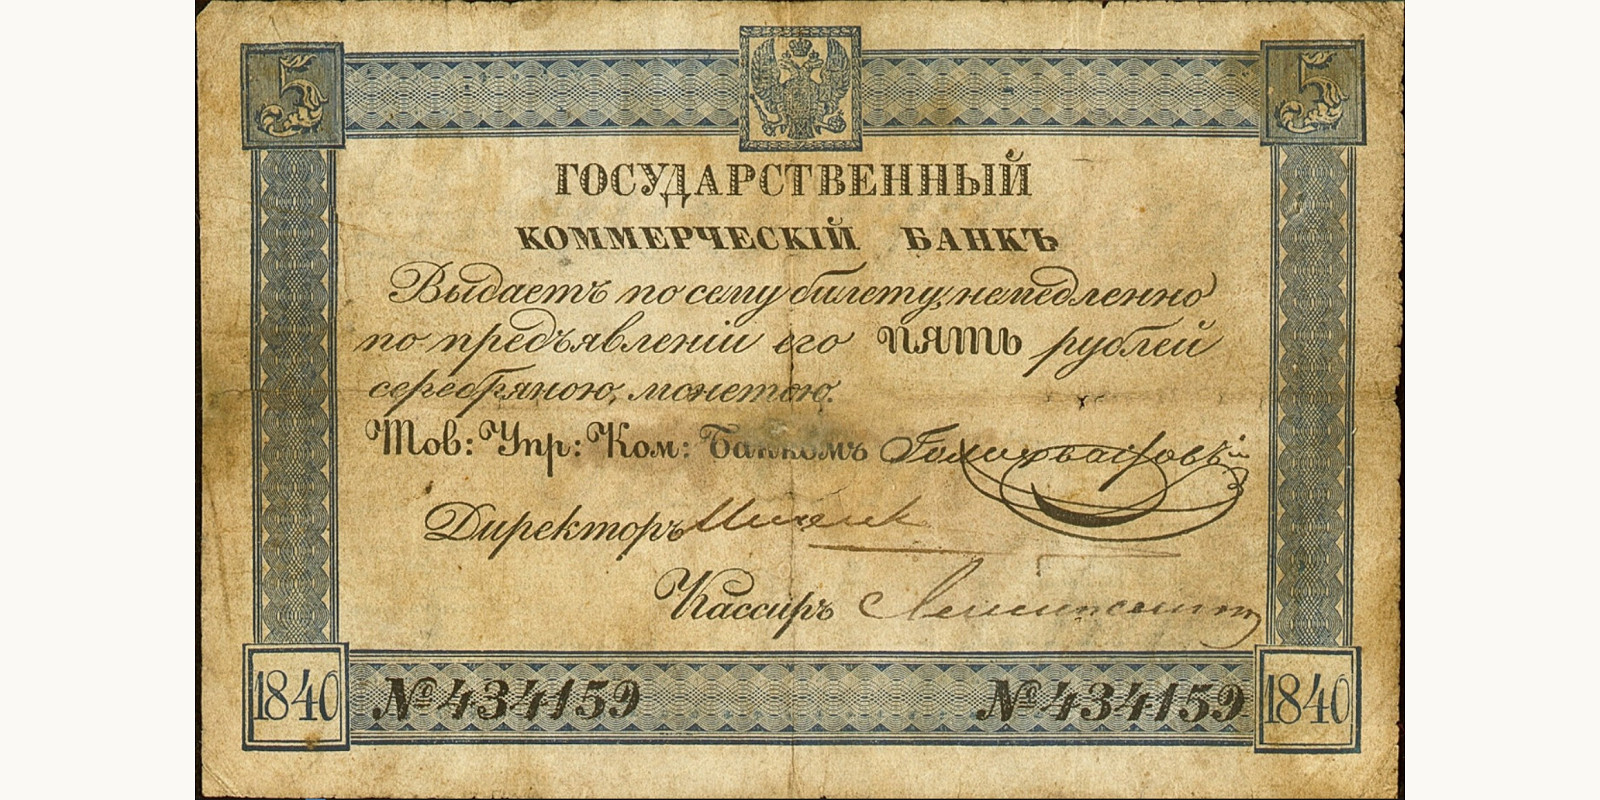 5 5
ГОСУДАРСТВЕННЫЙ
КОММЕРЧЕСКІЙ БАНКЪ
Выдаетъ по сему билету, немедленно
по предъявленіи его ПЯТЬ рублей
серебряною, монетою.
Тов: Упр: Ком: Банкомъ
Директоръ
Кассиръ
1840 №434159 №434159 1840